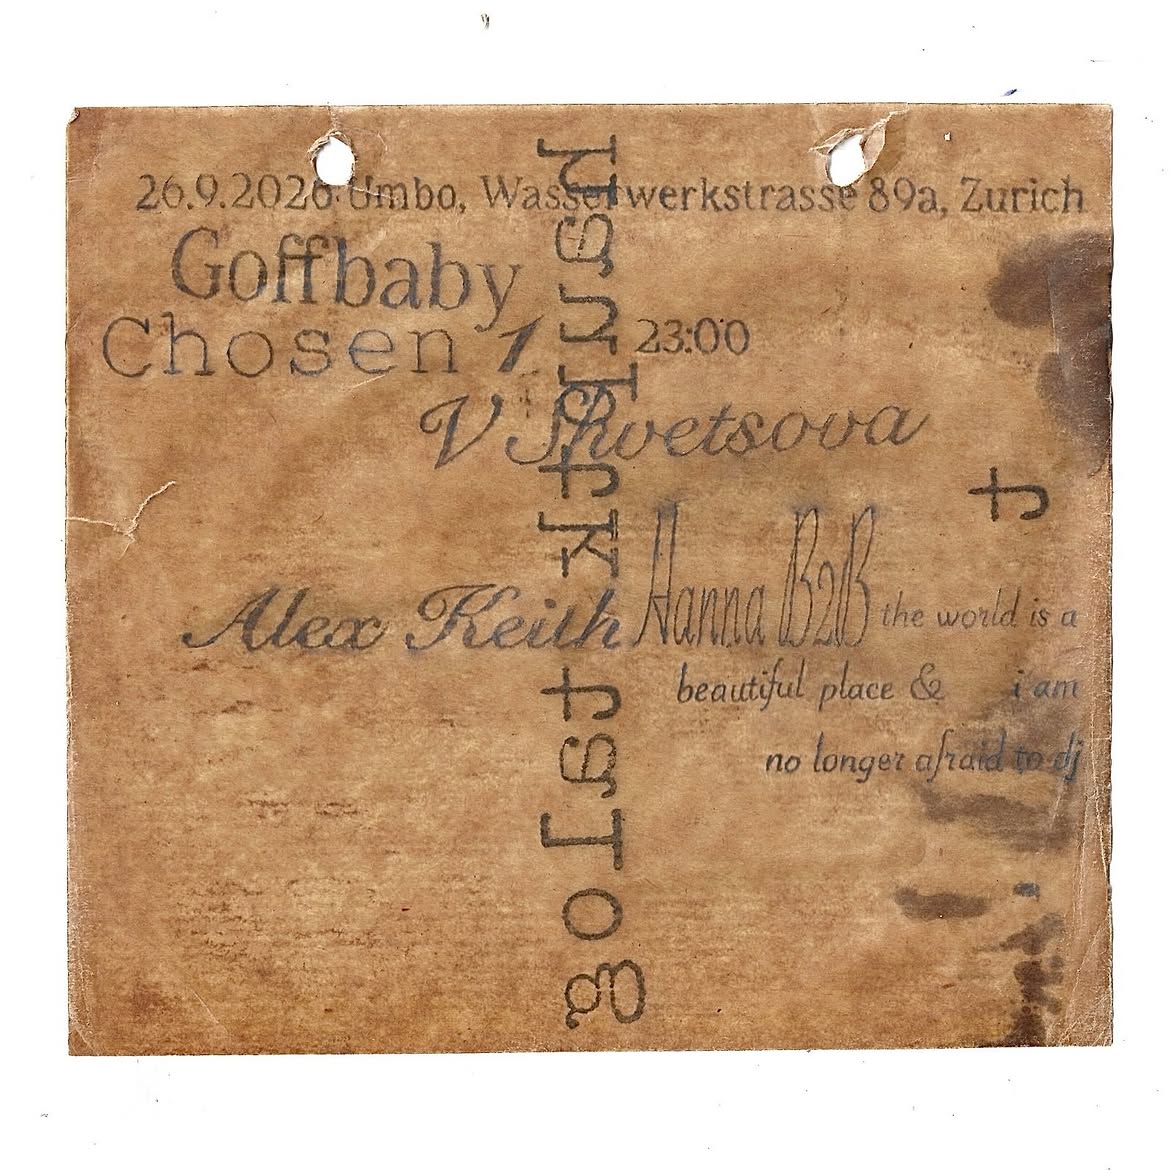 26.9.2026 Umbo, Wasserwerkstrasse 89a, Zurich
Goffbaby
Chosen 1 23:00
V Shvetsova
Alex Keith Hanna B2B the world is a
beautiful place & i am
no longer afraid to dj